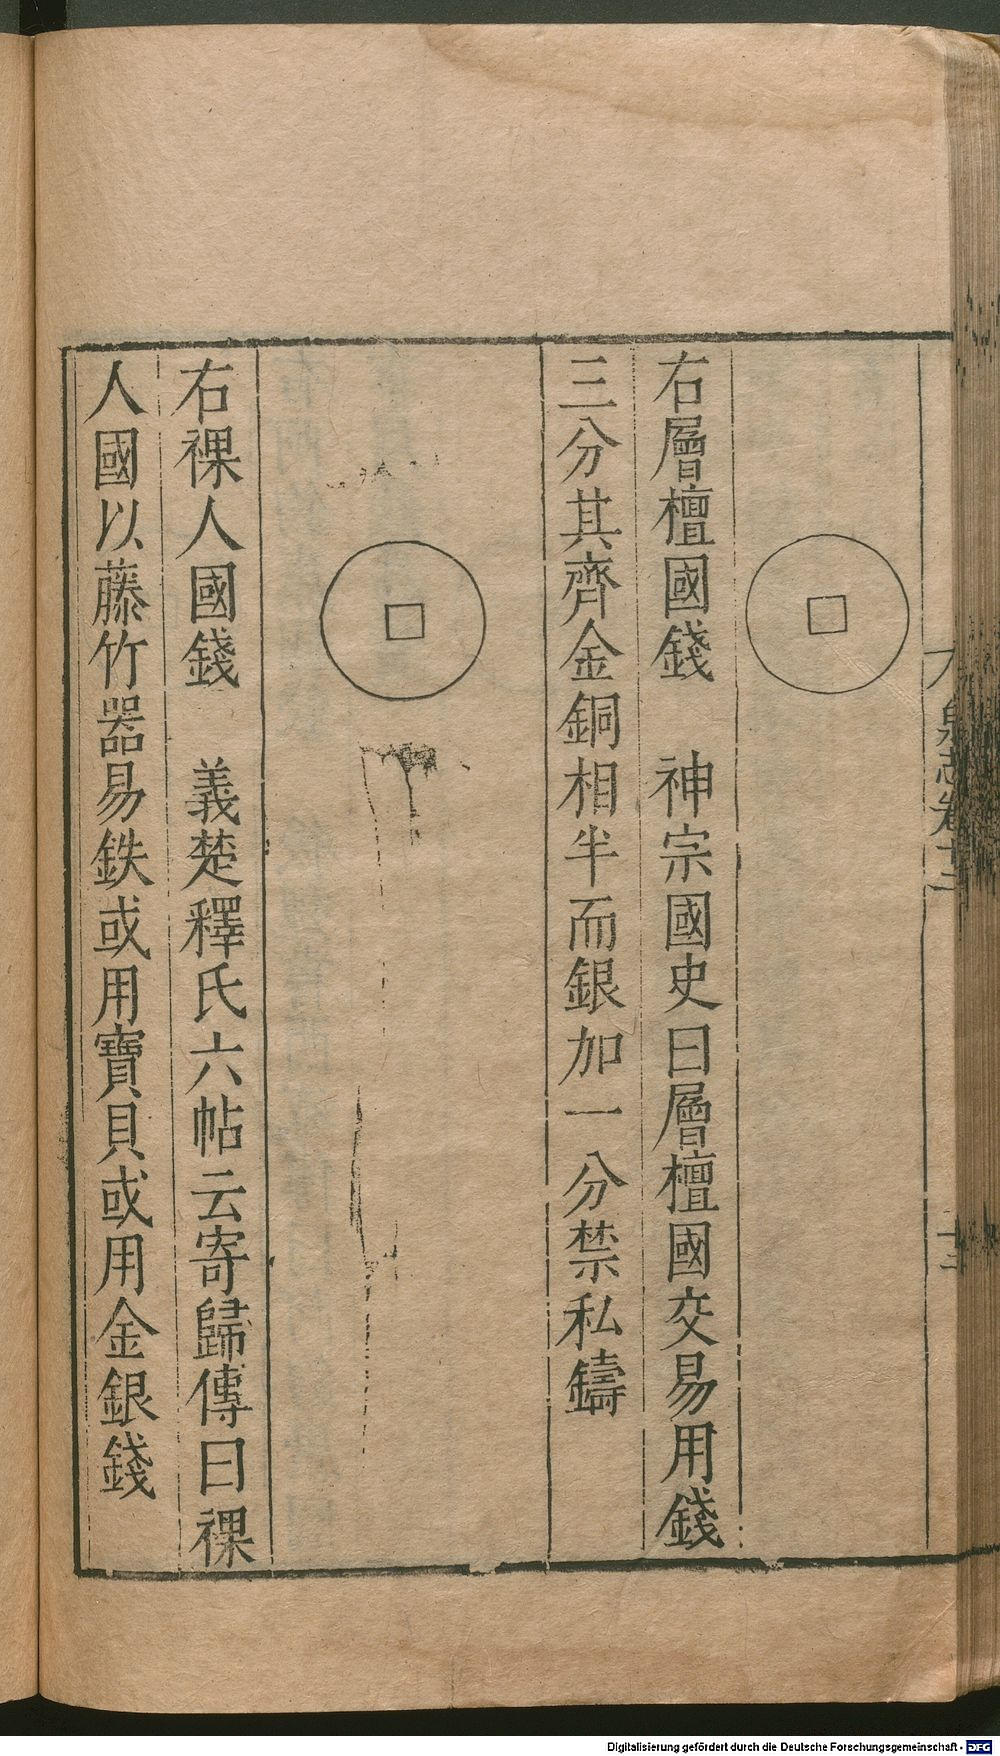 泉志卷十二
右層檀國錢　神宗國史曰層檀國交易用錢
三分其齊金銅相半而銀加一分禁私鑄
右裸人國錢　義楚釋氏六帖云寄歸傳曰裸
人國以藤竹器易鉄或用寶貝或用金銀錢
Digitalisierung gefördert durch die Deutsche Forschungsgemeinschaft - DFG